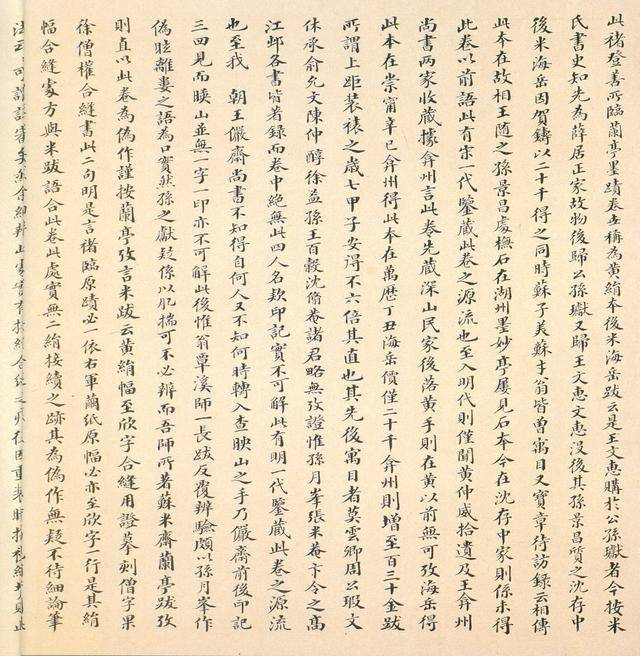 此褚登善所臨蘭亭墨蹟卷世稱為黃絹本後米海岳跋云是王文惠購於公孫瓛者今按米
氏書史知先為薛居正家故物後歸公孫瓛又歸王文惠文惠沒後其孫景昌質之沈存中
後米海岳因賀鑄以二十千得之同時蘇子美蘇才翁皆曾寓目又寶章待訪錄云相傳
此本在故相王隨之孫景昌處橅石在湖州墨妙亭屢見石本今在沈存中家則係未得
此卷以前語此有宋一代鑒藏此卷之源流也至入明代則僅聞黃仲威拾遺及王弇州
尚書兩家收藏據弇州言此卷先藏深山民家後落黃手則在黃以前無可攷海岳得
此本在崇甯辛巳弇州得此本在萬歷丁丑海岳價僅二十千弇州則增至百三十金跋
所謂上距裝裱之歲七甲子安得不六倍其直也其先後寓目者莫雲卿周公瑕文
休承俞允文陳仲醇徐益孫王百穀沈脩菴諸君略無攷證惟孫月峯張米菴卞令之高
江邨各書皆著錄而卷中絕無此四人名款印記實不可解此有明一代鑒藏此卷之源流
也至我　朝王儼齋尚書不知得自何人又不知何時轉入查映山之手乃儼齋前後印記
三四見而映山並無一字一印亦不可解此後惟翁覃溪師一長跋反覆辨驗頗以孫月峯作
偽眩離婁之語為口實然孫之獻疑係以肊揣可不必辨而吾師所著蘇米齋蘭亭跋攷
則直以此卷為偽作謹按蘭亭攷言米跋云黃絹幅至欣字合縫用證摹刻僧字果
徐僧權合縫書此二句明是言褚臨原蹟必一依右軍繭紙原幅必亦至欣字一行是其絹
幅合縫處方與米跋語合此卷此處實無二絹接續之跡其為偽作無疑不待細論筆
法云云可謂